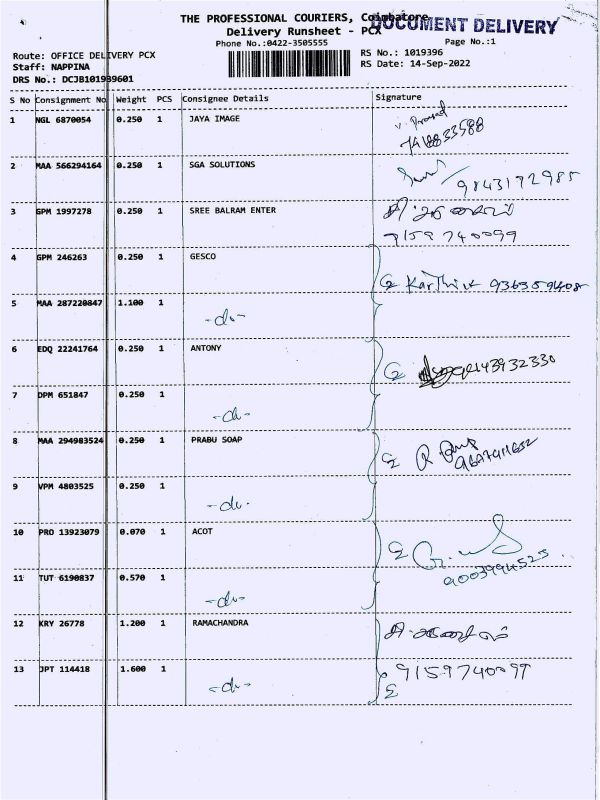 THE PROFESSIONAL COURIERS, Coimbatore
DOCUMENT DELIVERY
Delivery Runsheet - PCX
Phone No.:0422-3505555
Page No.:1
Route: OFFICE DELIVERY PCX
RS No.: 1019396
Staff: NAPPINA
RS Date: 14-Sep-2022
DRS No.: DCJB101989601
S No Consignment No Weight PCS Consignee Details Signature
1 NGL 6870054 0.250 1 JAYA IMAGE
2 MAA 566294164 0.250 1 SGA SOLUTIONS
9843172985
3 GPM 1997278 0.250 1 SREE BALRAM ENTER
9159740099
4 GPM 246263 0.250 1 GESCO
Karthick
5 MAA 287220847 1.100 1 -do-
6 EDQ 22241764 0.250 1 ANTONY
7 DPM 651847 0.250 1 -do-
8 MAA 294983524 0.250 1 PRABU SOAP
9 VPM 4803525 0.250 1 -do-
10 PRO 13923079 0.070 1 ACOT
9003994525
11 TUT 6190837 0.570 1 -do-
12 KRY 26778 1.200 1 RAMACHANDRA
13 JPT 114418 1.600 1 -do- 9159740099